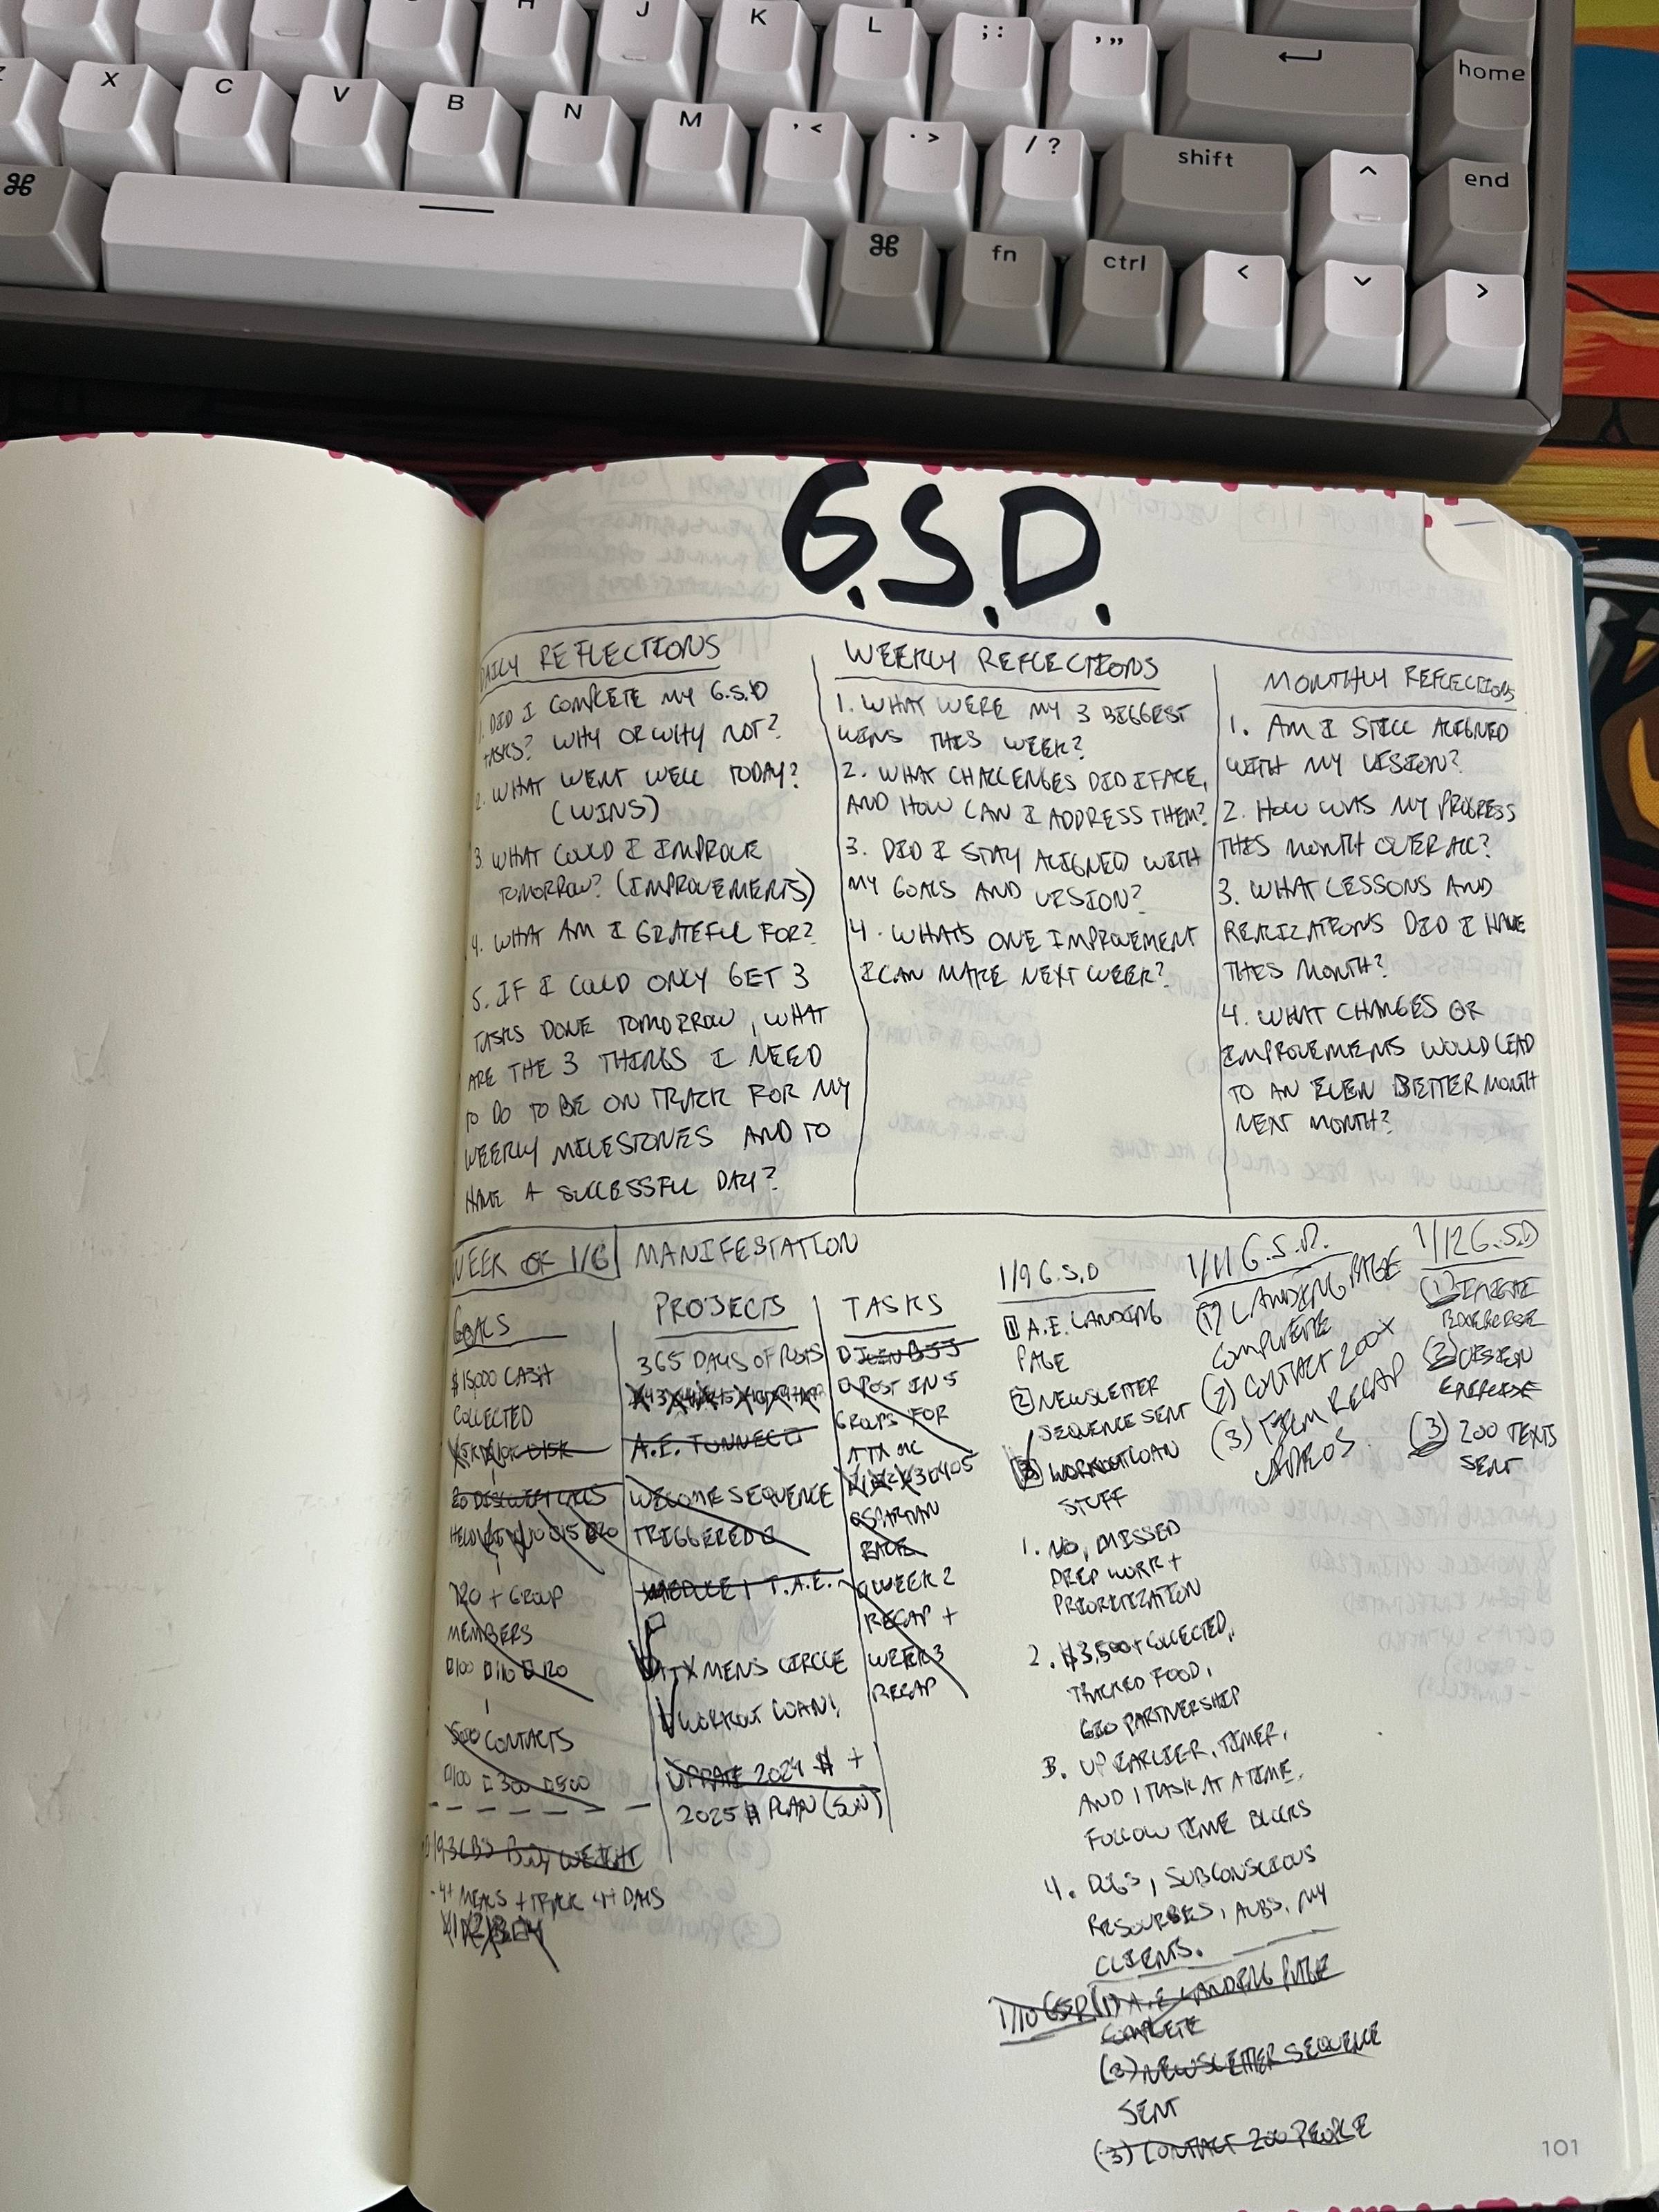 H J K L ; : ' "
home
Z X C V B N M , < . > / ? shift ^ end
⌘ ⌘ fn ctrl < ⌄ >
G.S.D.
DAILY REFLECTIONS
1. DID I COMPLETE MY G.S.D
TASKS? WHY OR WHY NOT?
2. WHAT WENT WELL TODAY?
(WINS)
3. WHAT COULD I IMPROVE
TOMORROW? (IMPROVEMENTS)
4. WHAT AM I GRATEFUL FOR?
5. IF I COULD ONLY GET 3
TASKS DONE TOMORROW, WHAT
ARE THE 3 THINGS I NEED
TO DO TO BE ON TRACK FOR MY
WEEKLY MILESTONES AND TO
HAVE A SUCCESSFUL DAY?
WEEKLY REFLECTIONS
1. WHAT WERE MY 3 BIGGEST
WINS THIS WEEK?
2. WHAT CHALLENGES DID I FACE,
AND HOW CAN I ADDRESS THEM?
3. DID I STAY ALIGNED WITH
MY GOALS AND VISION?
4. WHATS ONE IMPROVEMENT
I CAN MAKE NEXT WEEK?
MONTHLY REFLECTIONS
1. AM I STILL ALIGNED
WITH MY VISION?
2. HOW WAS MY PROGRESS
THIS MONTH OVERALL?
3. WHAT LESSONS AND
REALIZATIONS DID I HAVE
THIS MONTH?
4. WHAT CHANGES OR
IMPROVEMENTS WOULD LEAD
TO AN EVEN BETTER MONTH
NEXT MONTH?
WEEK OF 1/6 MANIFESTATION
GOALS
$15000 CASH
COLLECTED
20 DISCOVERY CALLS
HELD 10 15 20
120 + GROUP
MEMBERS
100 110 120
500 CONTACTS
100 300 500
193 LB'S BODY WEIGHT
- 4+ MEALS + TRACK 4+ DAYS
PROJECTS
365 DAYS OF POSTS
A.E. FUNNEL
WELCOME SEQUENCE
TRIGGERED
MODULE 1 T.A.E.
ATX MENS CIRCLE
WORKOUT LOAN!
UPDATE 2024 $ +
2025 $ PLAN (SUN)
TASKS
JOIN BJJ
POST IN 5
GROUPS FOR
ATX MC
SPARTAN
RACE
WEEK 2
RECAP +
WEEK 3
RECAP
1/9 G.S.D
1 A.E. LANDING
PAGE
2 NEWSLETTER
SEQUENCE SENT
3 WORKOUT LOAN
STUFF
1. NO, MISSED
PREP WORK +
PRIORITIZATION
2. $3,500+ COLLECTED,
TRACKED FOOD,
GEO PARTNERSHIP
3. UP EARLIER, TIMER,
AND 1 TASK AT A TIME.
FOLLOW TIME BLOCKS
4. DOGS, SUBCONSCIOUS
RESOURSES, AUBS, MY
CLIENTS.
1/10 GSD (1) A.E LANDING PAGE
COMPLETE
(2) NEWSLETTER SEQUENCE
SENT
(3) CONTACT 200 PEOPLE
1/11 G.S.D.
(1) LANDING PAGE
COMPLETE
(2) CONTACT 200X
(3) FILM RECAP
VIDEOS
1/12 G.S.D
(1)
(2)
(3) 200 TEXTS
SENT
101